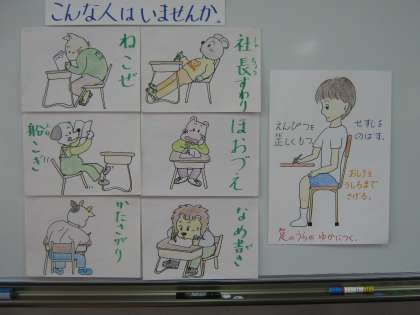 こんな人はいませんか。
ねこぜ
社長すわり
しゃちょう
船こぎ
ふね
ほおづえ
かたさがり
なめ書き
せすじを
のばす。
えんぴつを
正しくもつ。
おしりを
うしろまで
さげる。
足のうらが ゆかにつく。